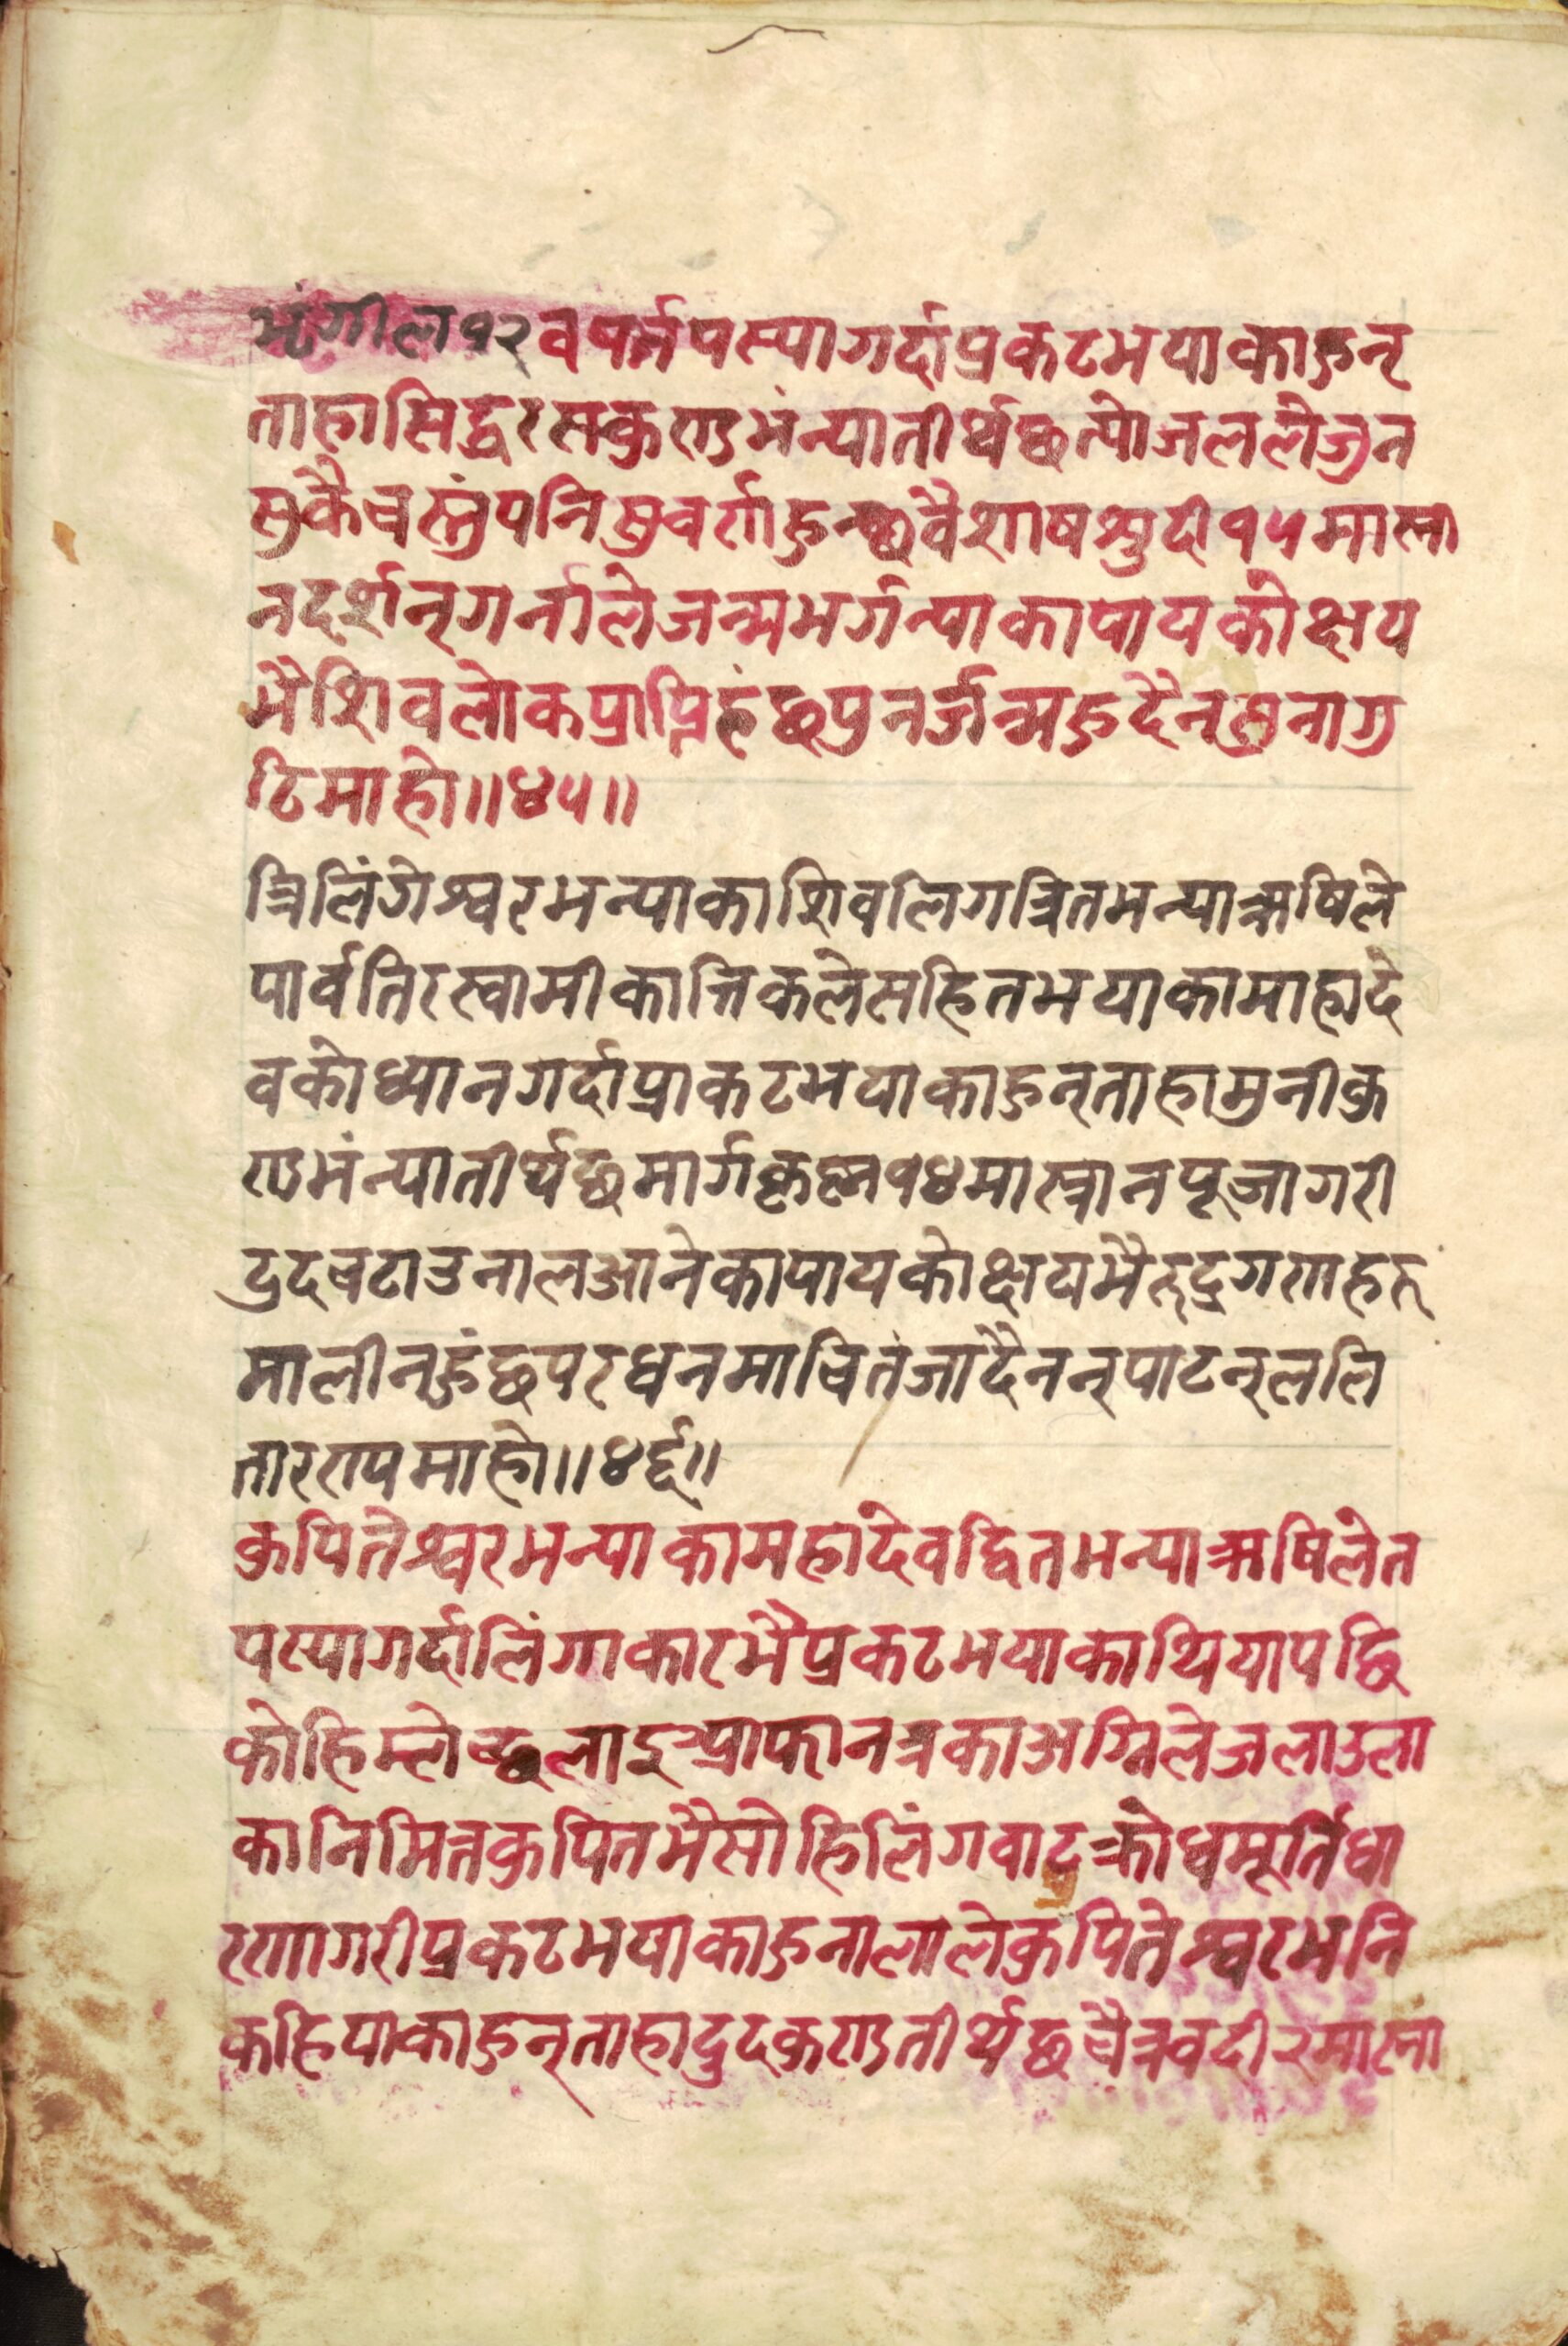 भृंगील १२ वर्षतपस्यागर्दाप्रकटभयाकाहुन्
ताहासिद्धरसकुण्डभंन्यातीर्थछत्योजलले जुन
सुकैवस्तुंपनिसुवर्णहुन्छवैशाषशुदी१५मास्ना
नदर्शन्गर्नालेजन्मभर्गन्याकापापकोक्षय
भैशिवलोकप्राप्तिहुंछपुनर्जन्महुदैन्सुनागु
ठिमाहो॥४५॥
त्रिलिंगेश्वरभन्याकाशिवलिगत्रितभन्याऋषिले
पार्वतिरस्वामीकार्त्तिकलेसहितभयाकामाहादे
वकोध्यानगर्दाप्राकटभयाकाहुन्ताहामुनीकु
ण्डभंन्यातीर्थछमार्गकृष्ण१४मास्नानपूजागरी
दुदचटाउनालआनेकापापकोक्षयभैरुद्रगणहरु
मालीन्हुंछपरधनमाचितंजादैनन्पाटन्ललि
तारणपमाहो॥४६॥
कुपितेश्वरभन्याकामहादेवद्वितभन्याऋषिलेत
पस्यागर्दालिंगाकारभैप्रकटभयाकाथियापछि
कोहिम्लेच्छलाइआफ्नानेत्रकाअग्निलेजलाउला
कानिमित्तकुपितभैसोहिलिंगवाटक्रोधमूर्तिधा
रणागरीप्रकटभयाकाहुनालालेकुपितेश्वरभनि
कहियाकाहुन्ताहादुदकुण्डतीर्थछचैत्रवदी२मास्ना